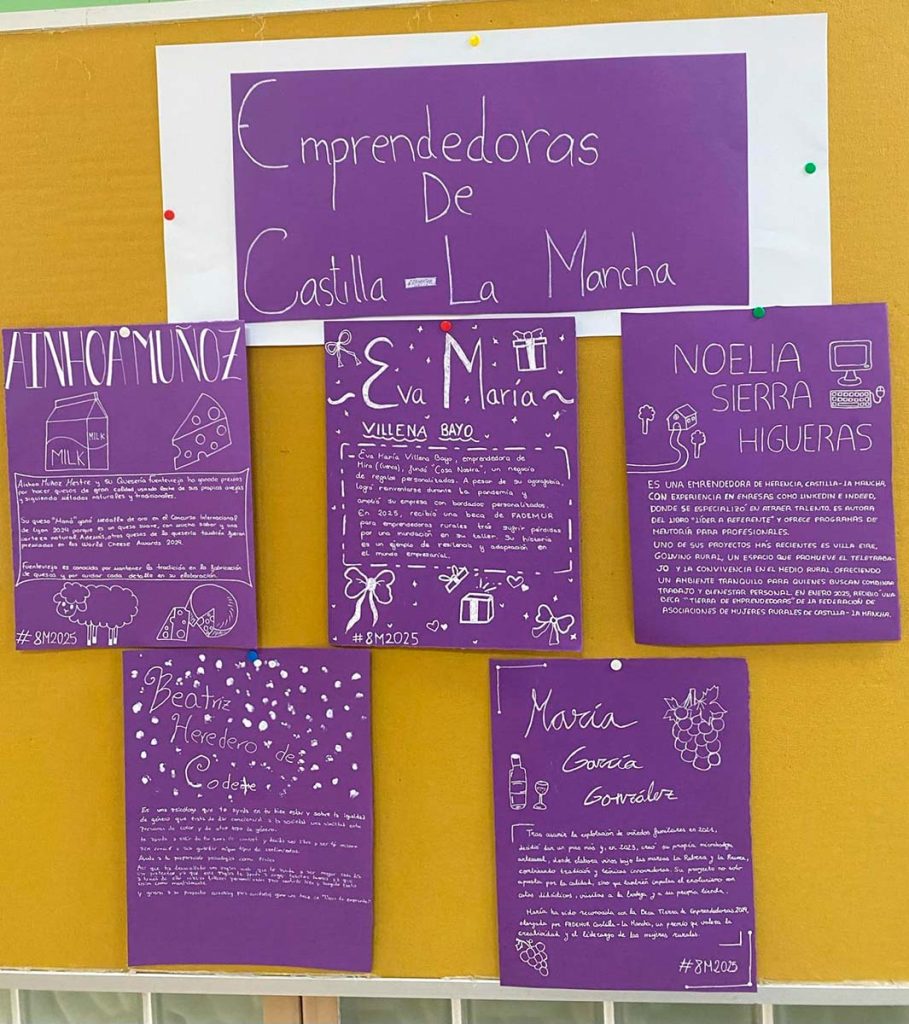 Emprendedoras
De
Castilla - La Mancha
AINHOA MUÑOZ
MILK
MILK
Ainhoa Muñoz Mestre y su Quesería Fuentevieja ha ganado premios
por hacer quesos de gran calidad usando leche de sus propias ovejas
y siguiendo métodos naturales y tradicionales.
Su queso "Maná" ganó medalla de oro en el Concurso Internacional
de Lyon 2024 porque es un queso suave, con mucho sabor y una
corteza natural. Además, otros quesos de la quesería también fueron
premiados en los World Cheese Awards 2024.
Fuentevieja es conocida por mantener la tradición en la fabricación
de quesos y por cuidar cada detalle en su elaboración.
#8M2025
Eva María
VILLENA BAYO
Eva María Villena Bayo, emprendedora de
Mira (Cuenca), fundó "Cosa Nostra", un negocio
de regalos personalizados. A pesar de su agorafobia,
logró reinventarse durante la pandemia y
amplió su empresa con bordados personalizados.
En 2025, recibió una beca de FADEMUR
para emprendedoras rurales tras sufrir pérdidas
por una inundación en su taller. Su historia
es un ejemplo de resiliencia y adaptación en
el mundo empresarial.
#8M2025
NOELIA
SIERRA
HIGUERAS
ES UNA EMRENDEDORA DE HERENCIA, CASTILLA-LA MANCHA,
CON EXPERIENCIA EN EMRESAS COMO LINKEDIN E INDEED,
DONDE SE ESPECIALIZÓ EN ATRAER TALENTO. ES AUTORA
DEL LIBRO "LÍDER A REFERENTE" Y OFRECE PROGRAMAS DE
MENTORÍA PARA PROFESIONALES.
UNO DE SUS PROYECTOS MÁS RECIENTES ES VILLA EIRE,
COLIVING RURAL, UN ESPACIO QUE PROMUEVE EL TELETRABA-
JO Y LA CONVIVENCIA EN EL MEDIO RURAL, OFRECIENDO
UN AMBIENTE TRANQUILO PARA QUIENES BUSCAN COMBINAR
TRABAJO Y BIENESTAR PERSONAL. EN ENERO 2025, RECIBIÓ UNA
BECA "TIERRA DE EMPRENDEDORAS" DE LA FEDERACIÓN DE
ASOCIACIONES DE MUJERES RURALES DE CASTILLA-LA MANCHA.
Beatriz
Heredero de
Codete
Es una psicóloga que te ayuda en tu bien estar y sobre la igualdad
de género que trata de dar a la sociedad una
personas de color y de otro tipo de género.
Ayuda a la preparación psicológica como
María
García
González
Tras asumir la explotación de viñedos familiares en 2023,
decidió dar un paso más y, en 2023, creó su propia microbodega
artesanal, donde elabora vinos bajo las marcas La Rubera y La Reuva,
combinando tradición y técnicas innovadoras. Su proyecto no solo
apuesta por la calidad, sino que también impulsa el enoturismo con
catas didácticas, visitas a la bodega y a su propia tienda.
María ha sido reconocida con la Beca Tierra de Emprendedoras 2024,
otorgada por FADEMUR Castilla-La Mancha, un premio que valora la
creatividad y el liderazgo de las mujeres rurales.
#8M2025